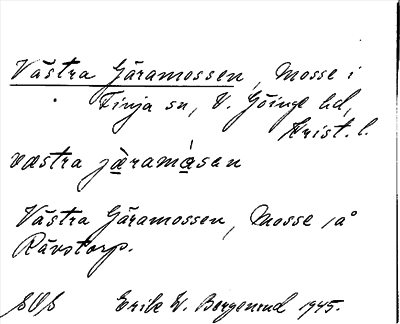 Västra Gäramossen, Mosse i
Finja sn, V. Göinge hd,
Krist. l.
västra jä̀ramɑ́san
Västra Gäramossen, Mosse på
Rävstorp.
Erik W. Bergerud 1945.